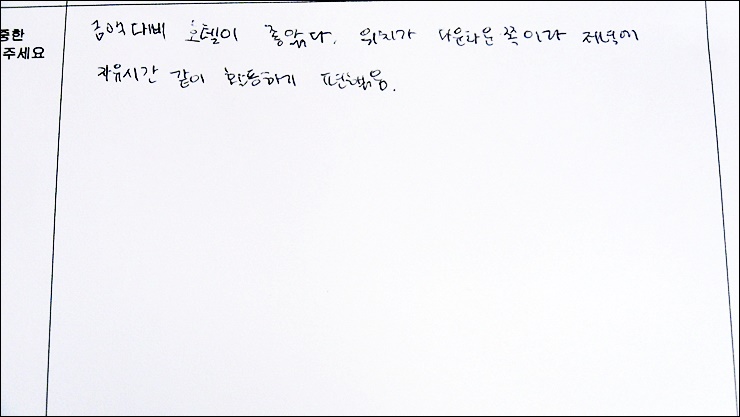 중한
주세요
금액대비 호텔이 좋았다. 위치가 다운타운쪽이라 저녁에
자유시간 같이 활동하기 편했음.